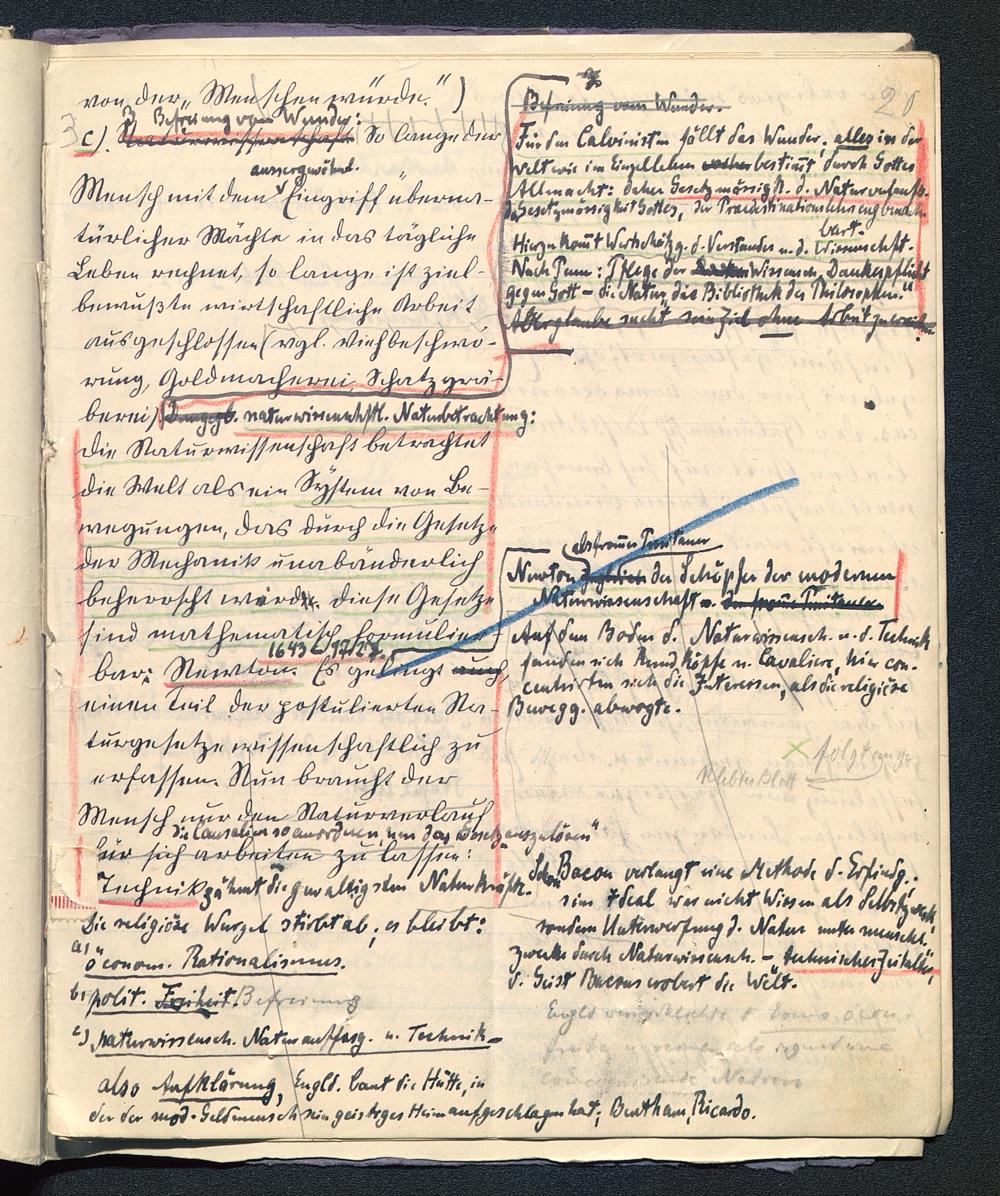 von der „Menschenwürde.")
3) Befreiung vom Wunder:
c). Naturwissenschaft. So lange der
aussergewöhnl.
Mensch mit dem „Eingriff" überna-
türlicher Mächte in das tägliche
Leben rechnet, so lange ist ziel-
bewußte wirtschaftliche Arbeit
ausgeschlossen (vgl. Viehbeschwö-
rung, Goldmacherei, Schatzgrä-
berei) naturwissenschftl. Naturbetrachtung:
die Naturwissenschaft betrachtet
die Welt als ein System von Be-
wegungen, das durch die Gesetze
der Mechanik unabänderlich
beherrscht wird. diese Gesetze
sind mathematisch formulier-
1643-1727.
bar: Newton. Es gelingt auch,
einen Teil der postulierten Na-
turgesetze wissenschaftlich zu
erfassen. Nun braucht der
Mensch nur den Naturverlauf
„die Causalien so anordnen um das auszulösen"
für sich arbeiten zu lassen:
Technik zähmt die gewaltigsten Naturkräfte.
Die religiöse Wurzel stirbt ab, es bleibt:
a) öconom. Rationalismus.
b) polit. Freiheit. Befreiung
c) naturwissensch. Naturauffassg. u. Technik
also Aufklärung, Engld. baut die Hütte, in
der der mod. Geldmensch sein geistiges Heim aufgeschlagen hat; Bentham, Ricardo.
20
Befreiung vom Wunder.
Für den Calvinisten fällt das Wunder, alles in der
Welt wie im Einzelleben bestimt durch Gottes
Allmacht: daher Gesetzmässigk. d. Naturverlaufs.
Gesetzmässigkeit Gottes, der Praedestinationslehre
bart.
Hierzu komt Wertschätzg. d. Verstandes u. d. Wissenschaft.
Nach Penn: Pflege der Wissensch. Dankespflicht
gegen Gott – die Natur „das Bibliothek des Philosophen."
Aberglaube sucht sein Ziel ohne Arbeit zu erreichen
als fromer Puritaner
Newton zugleich der Schöpfer der modernen
Naturwissenschaft u. der frome Puritaner.
Auf dem Boden d. Naturwissensch. u. d. Technik
fanden sich Rundköpfe u. Cavaliere, hier con-
centrirten sich die Interessen, als die religiöse
Bewegg. abwogte.
folgt ange-
klebtes Blatt
Schon Bacon verlangt eine Methode d. Erfindg.:
sein Ideal war nicht Wissen als Selbstzweck,
sondern Unterwerfung d. Natur unter menschl.
Zwecke durch Naturwissensch. – technisches Zeitalter,
d. Geist Bacons erobert die Welt.